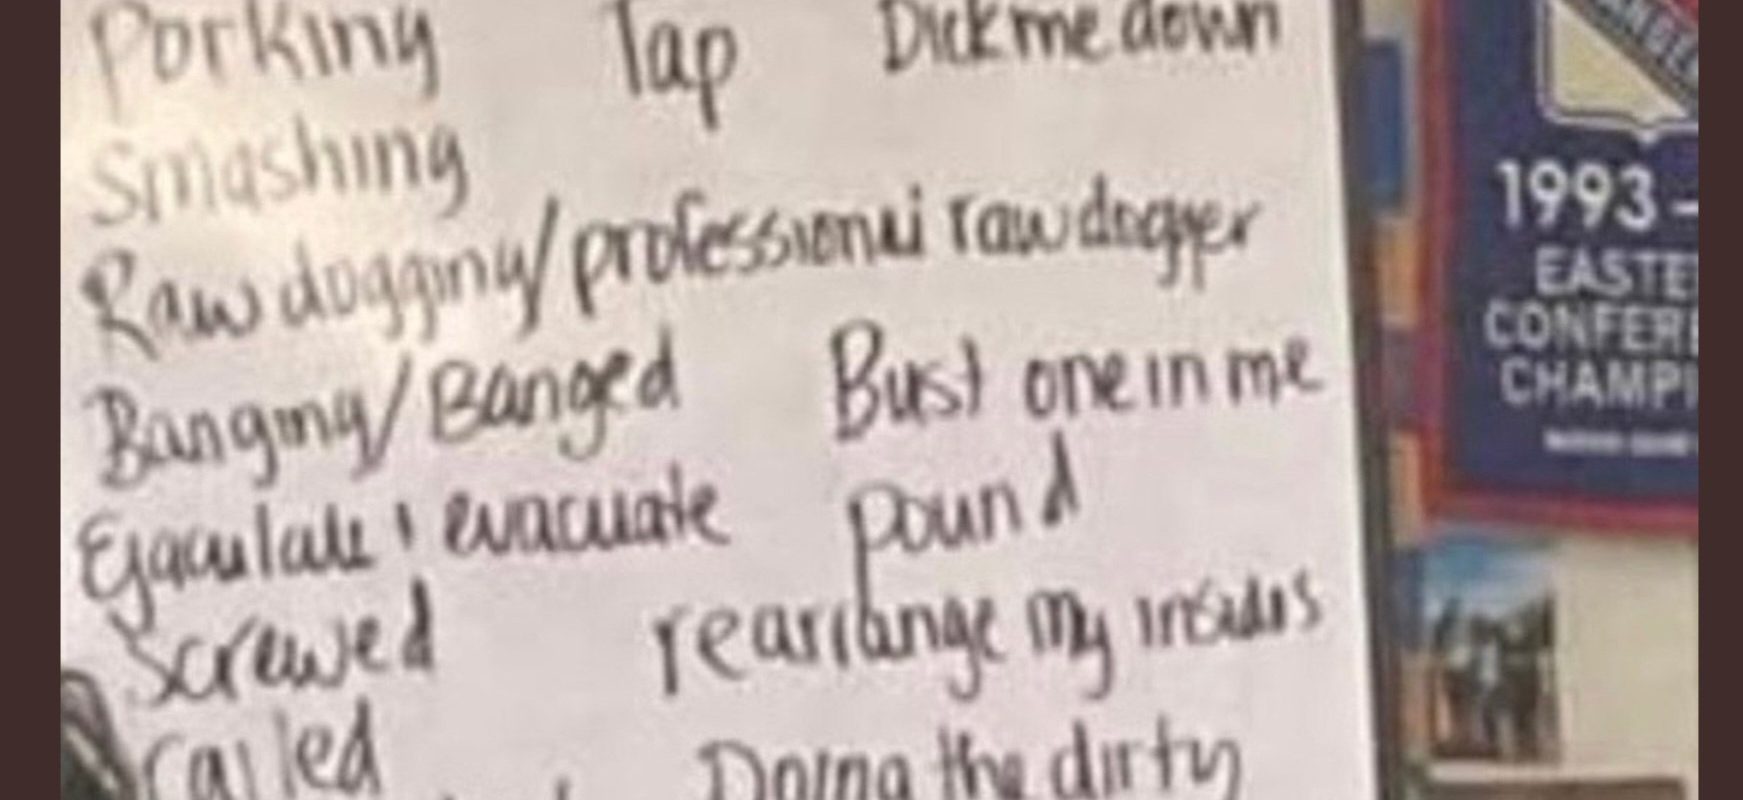 Porking Tap Dick me down
Smashing
Rawdogging/professional rawdogger
Banging/Banged Bust one in me
Ejaculate & evacuate pound
Screwed rearrange my insides
railed Doing the dirty
1993 -
EASTE
CONFER
CHAMPI